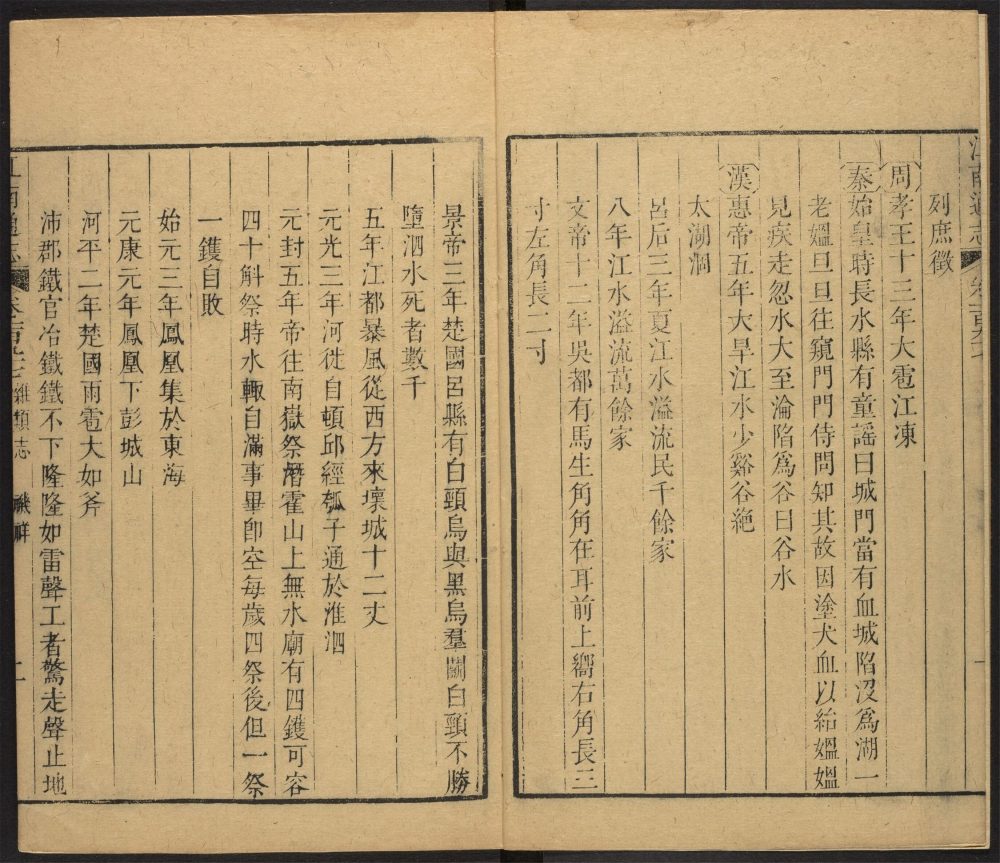 江南通志
列庶徵
周孝王十三年大雹江凍
秦始皇時長水縣有童謠曰城門當有血城陷没爲湖一
老嫗旦旦往窺門門侍問知其故因塗犬血以紿嫗嫗
見疾走忽水大至淪陷爲谷曰谷水
漢惠帝五年大旱江水少谿谷絶
太湖涸
呂后三年夏江水溢流民千餘家
八年江水溢流萬餘家
文帝十二年吳都有馬生角角在耳前上嚮右角長三
寸左角長二寸
景帝三年楚國呂縣有白頸烏與黑烏羣鬭白頸不勝
墮泗水死者數千
五年江都暴風從西方來壞城十二丈
元光三年河徙自頓邱經瓠子通於淮泗
元封五年帝往南嶽祭灊霍山上無水廟有四鑊可容
四十斛祭時水輙自滿事畢卽空每歲四祭後但一祭
一鑊自敗
始元三年鳳凰集於東海
元康元年鳳凰下彭城山
河平二年楚國雨雹大如斧
沛郡鐵官冶鐵鐵不下隆隆如雷聲工者驚走聲止地
江南通志 雜類志 禨祥 二